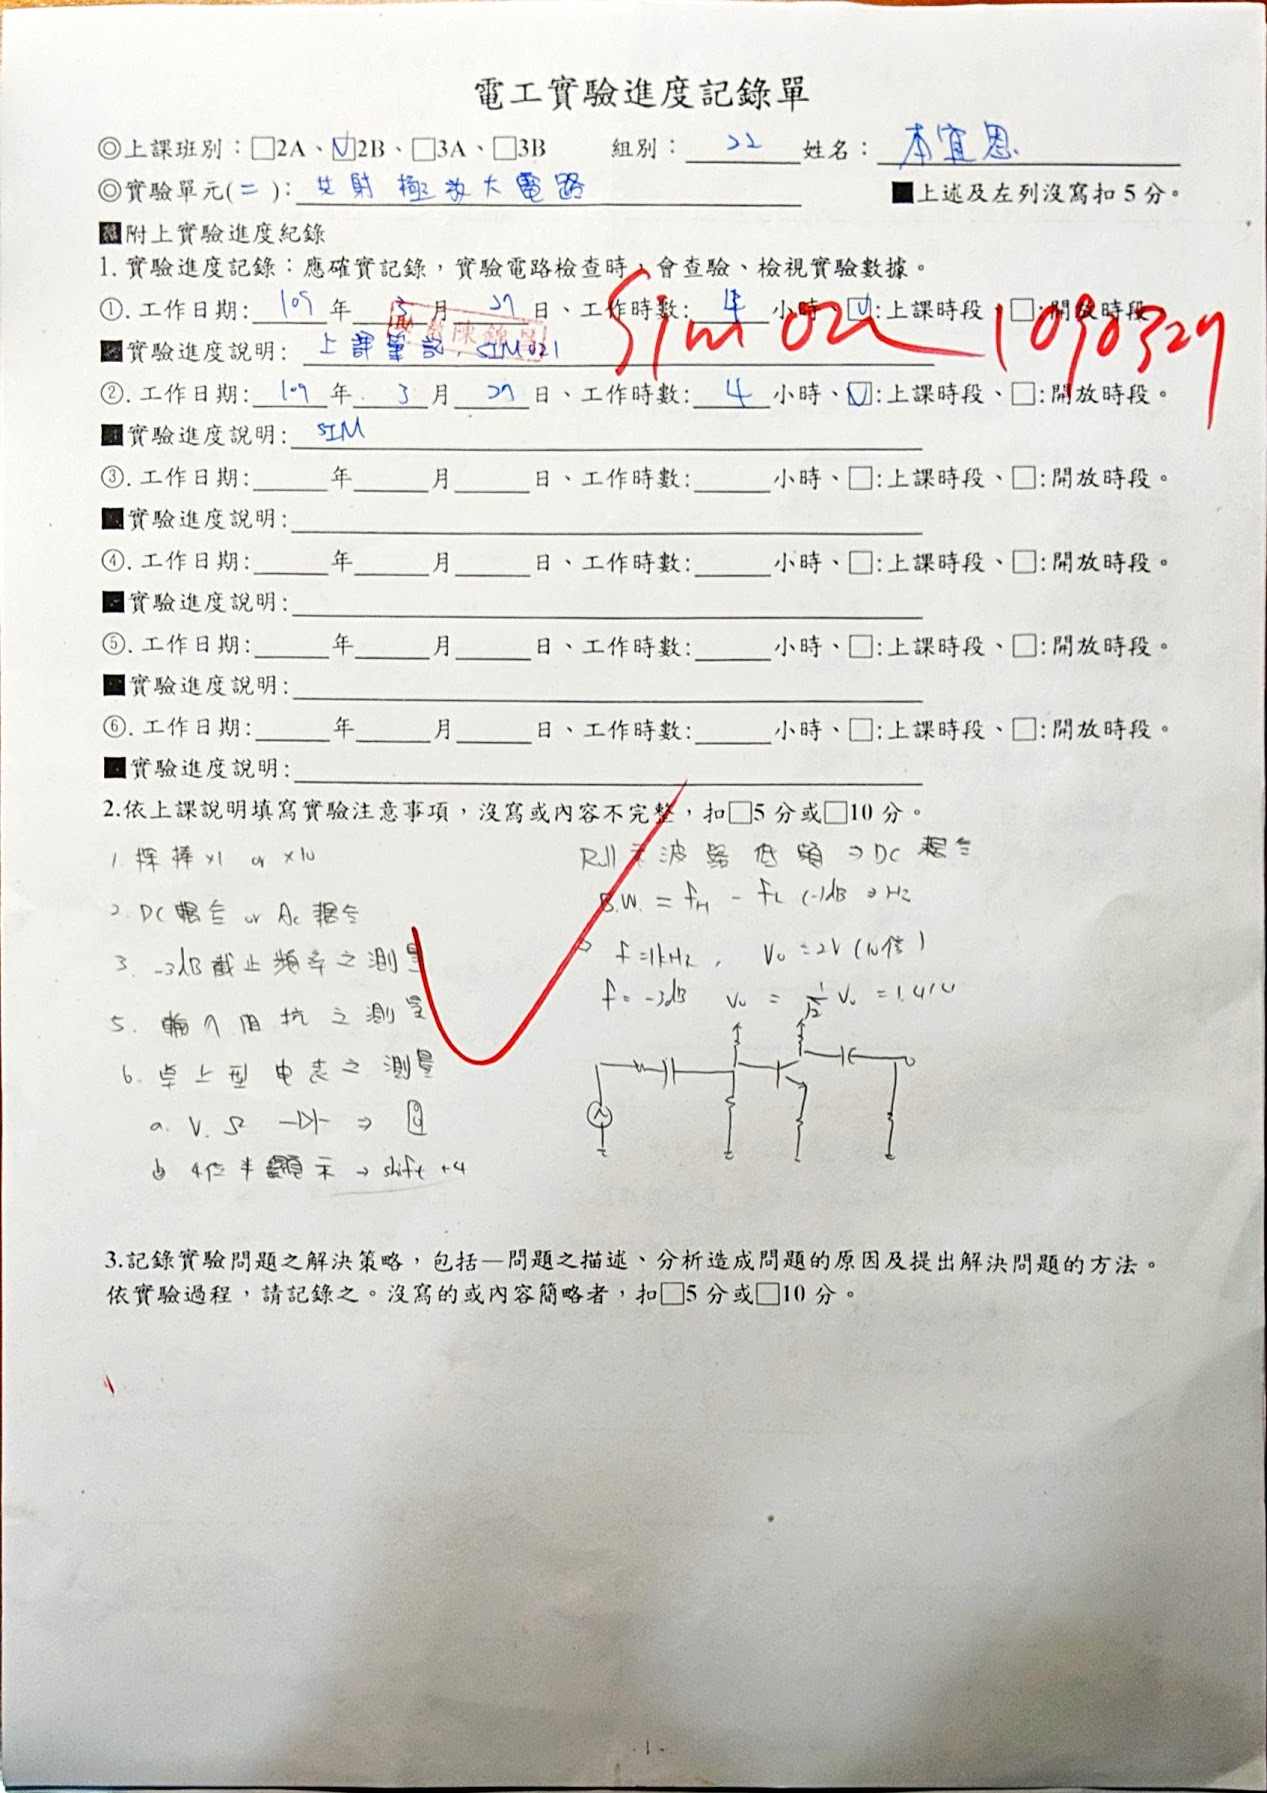 電工實驗進度記錄單
◎上課班別：□2A、☑2B、□3A、□3B 組別： 22 姓名： 本宜恩
◎實驗單元(二)： 共射極放大電路 ■上述及左列沒寫扣5分。
■附上實驗進度紀錄
1. 實驗進度記錄：應確實記錄，實驗電路檢查時，會查驗、檢視實驗數據。
①. 工作日期: 109 年 3 月 27 日、工作時數: 4 小時、☑:上課時段、□:開放時段
■實驗進度說明: 上課筆記, SIM021
Sim 1090327
②. 工作日期: 109 年 3 月 27 日、工作時數: 4 小時、☑:上課時段、□:開放時段。
■實驗進度說明: SIM
③. 工作日期: 年 月 日、工作時數: 小時、□:上課時段、□:開放時段。
■實驗進度說明:
④. 工作日期: 年 月 日、工作時數: 小時、□:上課時段、□:開放時段。
■實驗進度說明:
⑤. 工作日期: 年 月 日、工作時數: 小時、□:上課時段、□:開放時段。
■實驗進度說明:
⑥. 工作日期: 年 月 日、工作時數: 小時、□:上課時段、□:開放時段。
■實驗進度說明:
2.依上課說明填寫實驗注意事項，沒寫或內容不完整，扣□5分或□10分。
1. 探棒 x1 or x10
2. DC耦合 or AC耦合
3. -3dB截止頻率之測量
5. 輸入阻抗之測量
6. 桌上型电表之測量
a. V. Ω ⇒
b 4位半顯示 → shift +4
Roll 示波器低頻 ⇒ DC耦合
B.W. = fH - fL (-3dB ⇒ Hz
f=1kHz, Vo=2V (10倍)
f=-3dB Vo = 1/√2 Vo = 1.414
3.記錄實驗問題之解決策略，包括—問題之描述、分析造成問題的原因及提出解決問題的方法。
依實驗過程，請記錄之。沒寫的或內容簡略者，扣□5分或□10分。
- 1 -